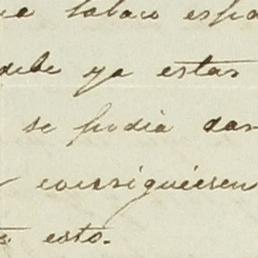 tabaco espa
debe ya estar
se podia dar
consiguiesen
esto.